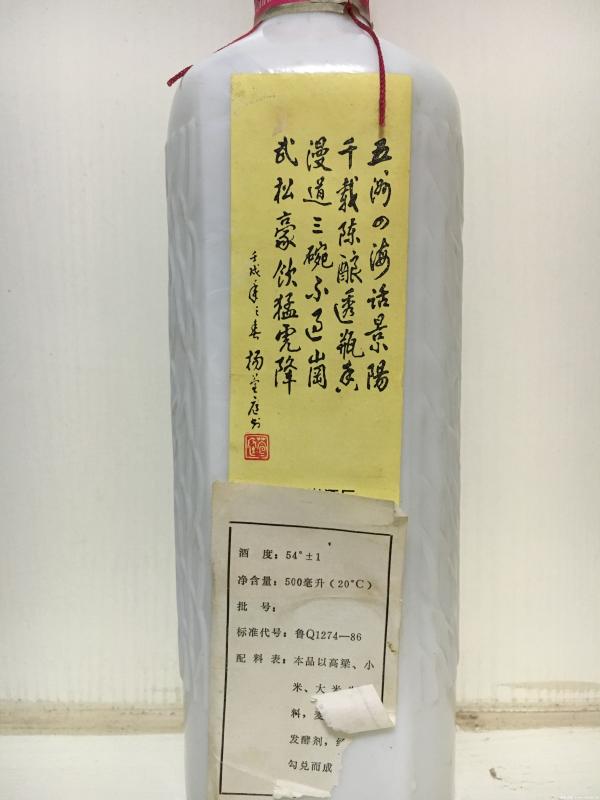 五洲四海话景陽
千载陈酿透瓶香
漫道三碗不过崗
武松豪饮猛虎降
壬戌年之春 杨萱庭书
酒 度：54°±1
净含量：500毫升（20℃）
批 号：
标准代号：鲁Q1274—86
配 料 表：本品以高梁、小
米、大米
料，麦
发酵剂，
勾兑而成